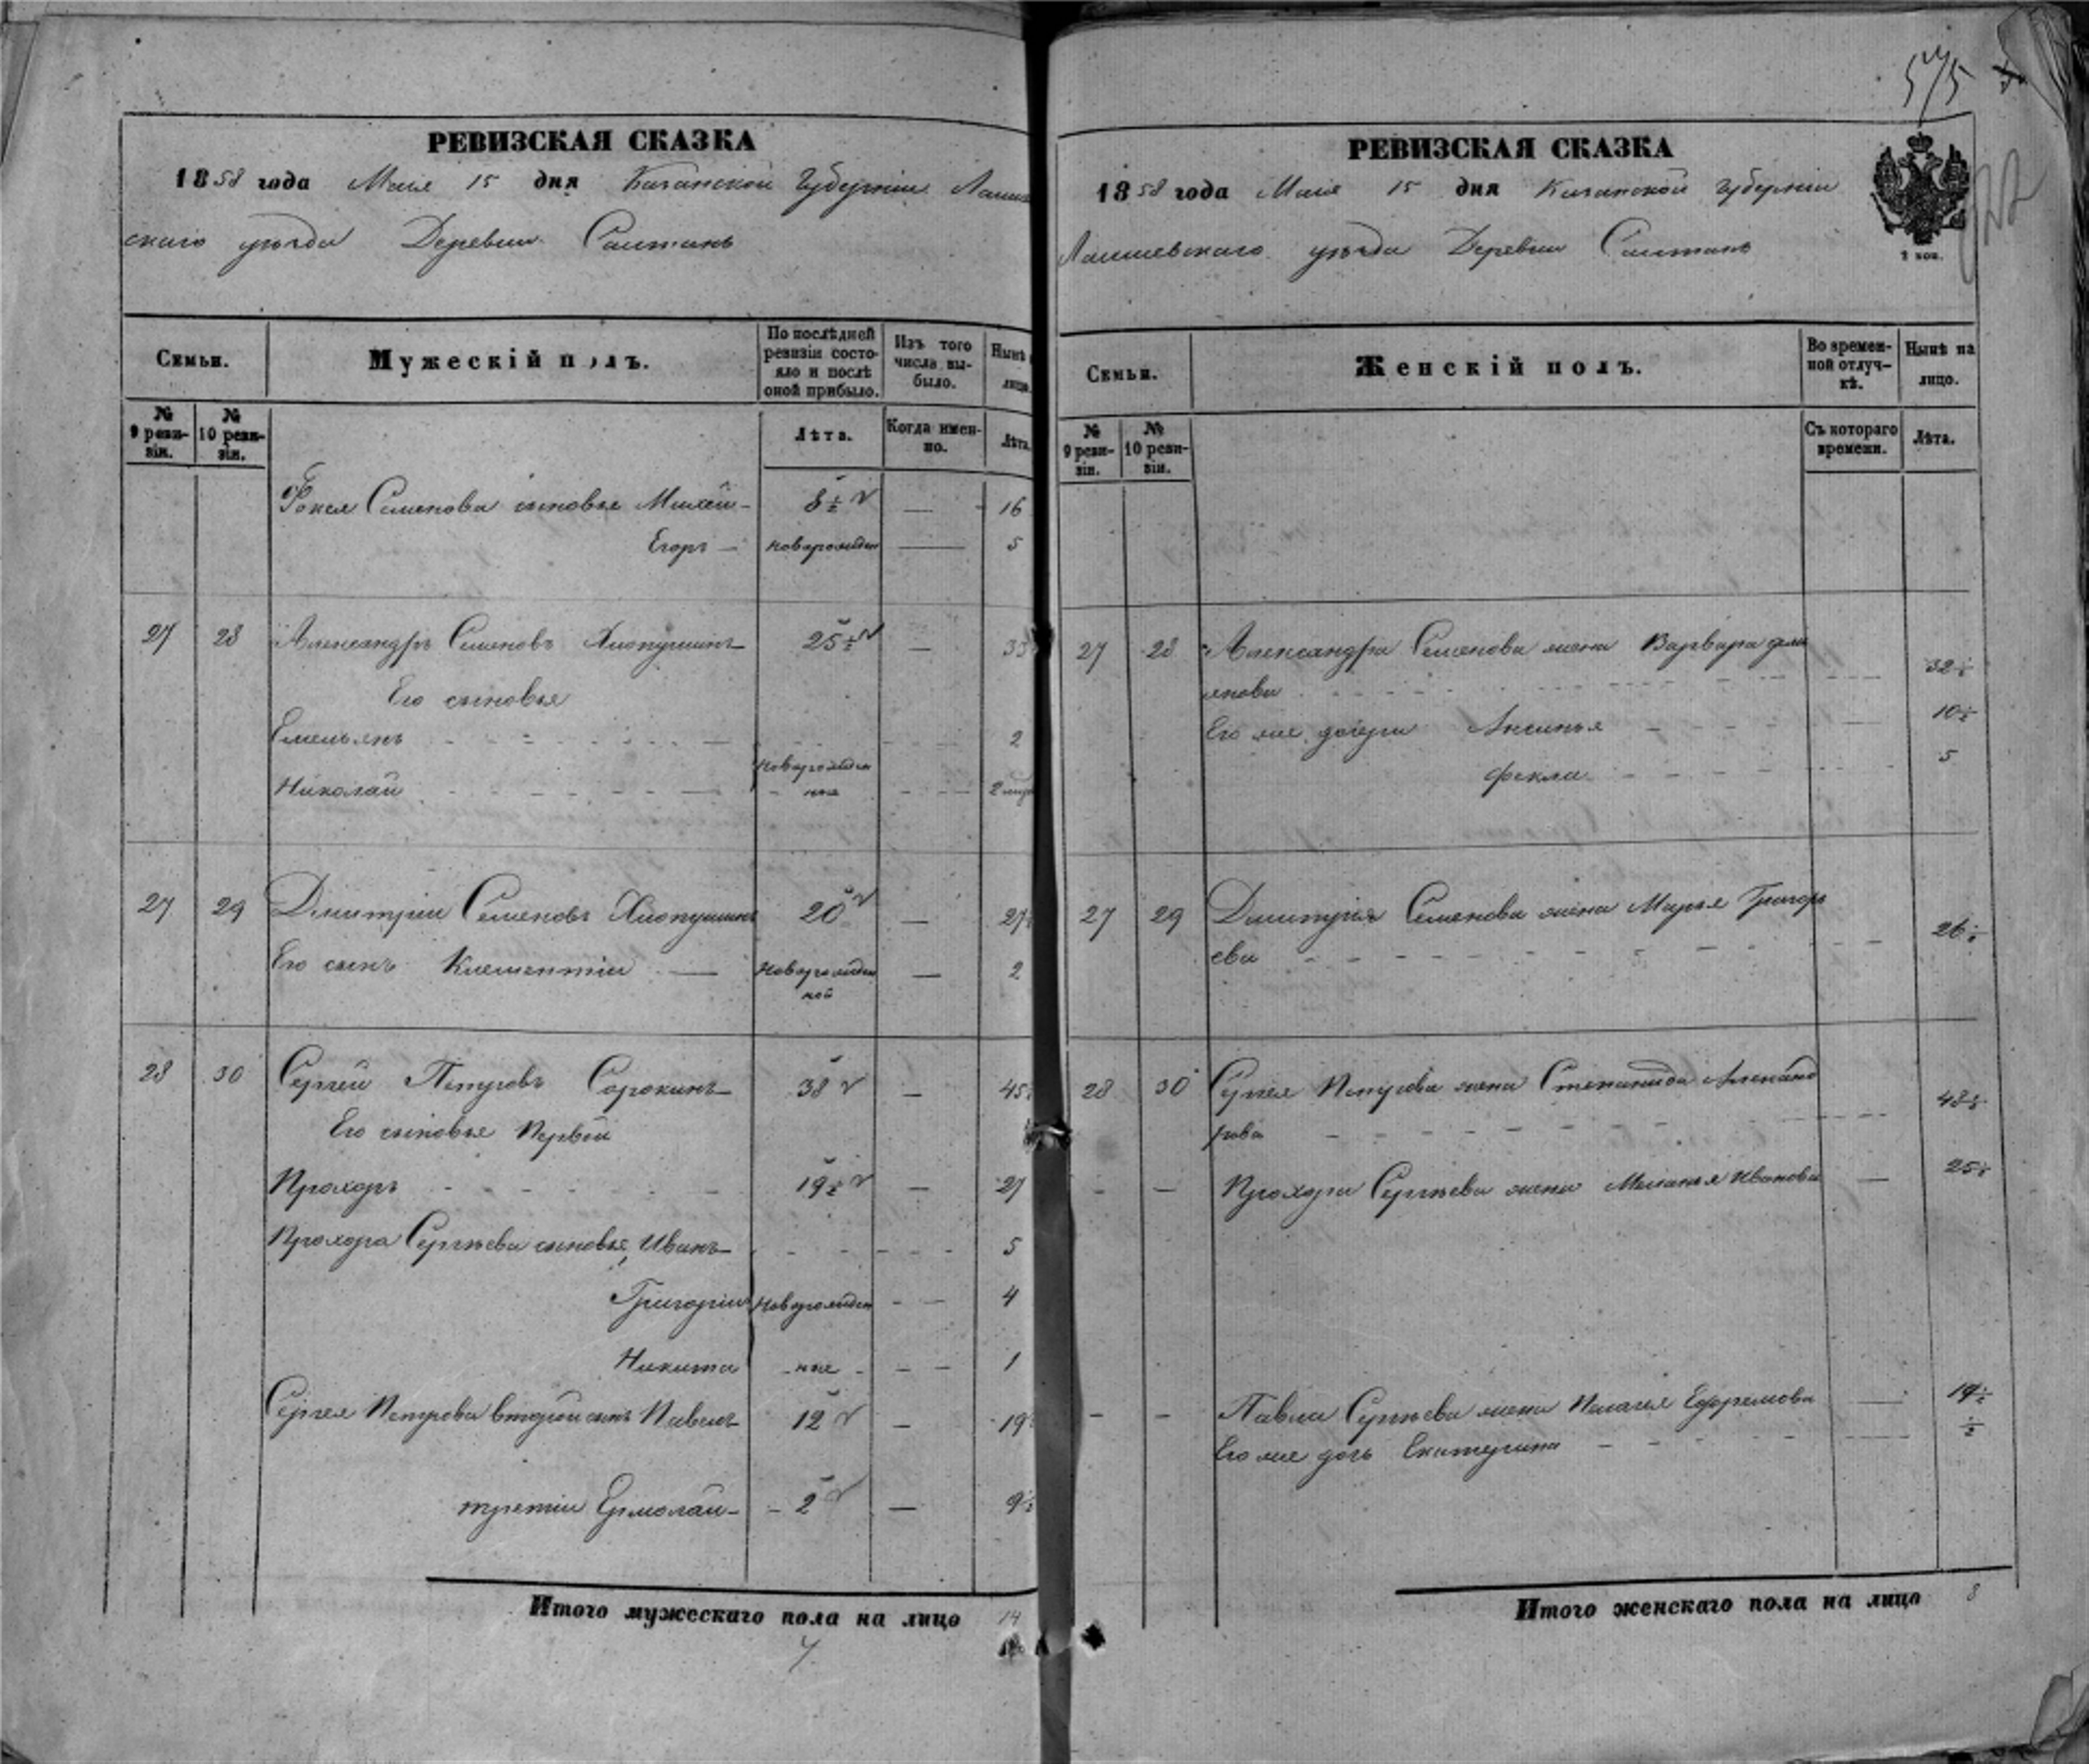 РЕВИЗСКАЯ СКАЗКА
1858 года Маія 15 дня Казанской Губерніи Лаишев
скаго уѣзда Деревни Саитанъ
Семьи.
Мужескій полъ.
По послѣдней ревизіи состояло и послѣ оной прибыло.
Изъ того числа выбыло.
Нынѣ лицо.
№ 9 ревизіи.
№ 10 ревизіи.
Лѣта.
Когда именно.
Лѣта.
Фокея Семенова сыновья Михей 8½ — 16
Егоръ — новорожден — 5
27 28 Александръ Семеновъ Хлопушинъ 25½ — 33
Его сыновья
Емельянъ 2
Николай новорожден ные 2 мѣс
27 29 Дмитрій Семеновъ Хлопушинъ 20 — 27½
Его сынъ Клементій — новорожден ной — 2
28 30 Сергей Петровъ Сорокинъ 38 — 45½
Его сыновья Первой
Прохоръ 19½ — 27
Прохора Сергѣева сыновья, Иванъ 5
Григорій новорожден 4
Никита ные 1
Сергея Петрова второй сынъ Павелъ 12 — 19½
третій Ермолай 2 — 9½
Итого мужескаго пола на лицо 14
575
РЕВИЗСКАЯ СКАЗКА
1858 года Маія 15 дня Казанской Губерніи
Лаишевскаго уѣзда Деревни Саитанъ
2 коп.
Семьи.
Женскій полъ.
Во временной отлучкѣ.
Нынѣ на лицо.
№ 9 ревизіи.
№ 10 ревизіи.
Съ котораго времени.
Лѣта.
27 28 Александра Семенова жена Варвара Деми
янова 32½
Его же дочери Аксинья 10½
Фекла 5
27 29 Дмитрія Семенова жена Марья Григорь
ева 26½
28 30 Сергея Петрова жена Степанида Александ
рова 48½
— — Прохора Сергѣева жена Меланья Иванова — 25½
— — Павла Сергѣева жена Палагея Ефремова — 19½
Его же дочь Екатерина ½
Итого женскаго пола на лицо 8